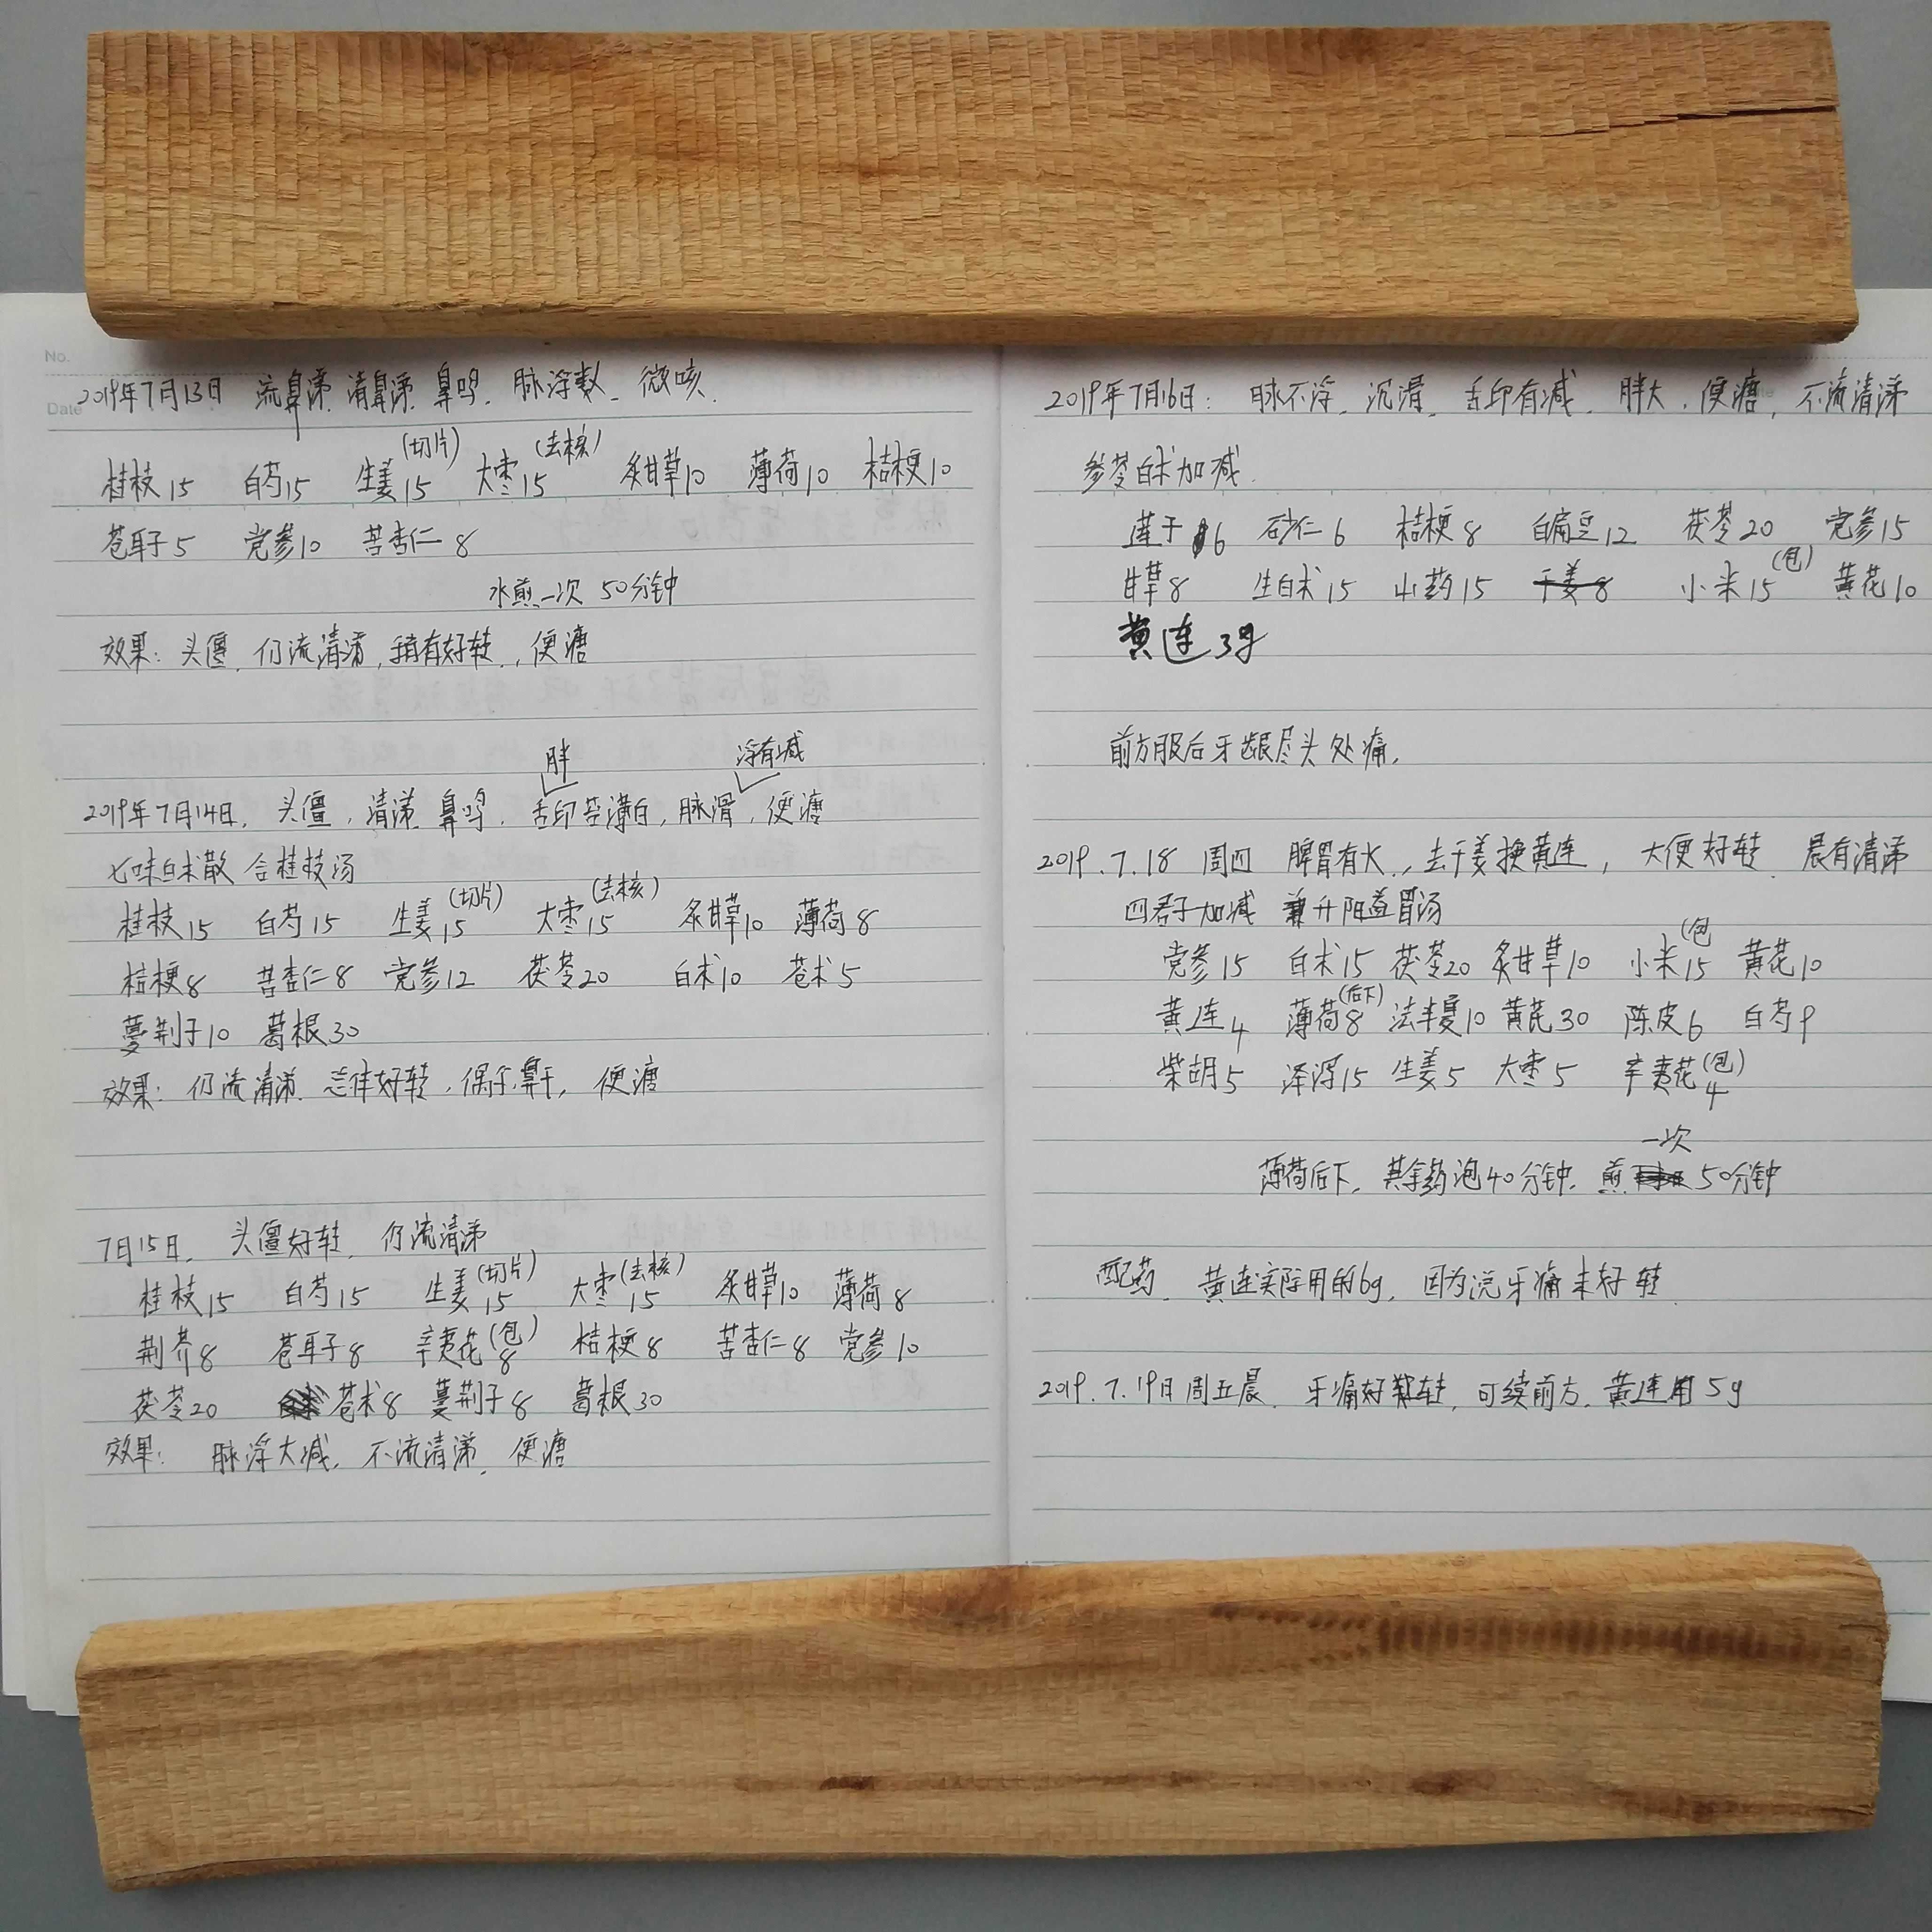 No.
Date
2019年7月13日 流鼻涕 清鼻涕 鼻鸣、脉浮数、微咳、
桂枝15 白芍15 生姜15(切片) 大枣15(去核) 炙甘草10 薄荷10 桔梗10
苍耳子5 党参10 苦杏仁8
水煎一次 50分钟
效果：头僵、仍流清涕，稍有好转，便溏
胖 浮有减
2019年7月14日、头僵，清涕、鼻鸣、舌印苔薄白，脉滑，便溏
七味白术散 合桂枝汤
桂枝15 白芍15 生姜15(切片) 大枣15(去核) 炙甘草10 薄荷8
桔梗8 苦杏仁8 党参12 茯苓20 白术10 苍术5
蔓荆子10 葛根30
效果：仍流清涕、总体好转，偶尔鼻干，便溏
7月15日、头僵好转、仍流清涕
桂枝15 白芍15 生姜15(切片) 大枣15(去核) 炙甘草10 薄荷8
荆芥8 苍耳子8 辛夷花8(包) 桔梗8 苦杏仁8 党参10
茯苓20 苍术8 蔓荆子8 葛根30
效果：脉浮大减，不流清涕、便溏
2019年7月16日：脉不浮、沉滑、舌印有减、胖大、便溏，不流清涕
参苓白术加减
莲子6 砂仁6 桔梗8 白扁豆12 茯苓20 党参15
甘草8 生白术15 山药15 干姜8 小米15(包) 黄花10
黄连3g
前方服后牙龈尽头处痛，
2019.7.18 周四 脾胃有火，去干姜换黄连，大便好转、晨有清涕
四君子加减 兼升阳益胃汤
党参15 白术15 茯苓20 炙甘草10 小米15(包 黄花10
黄连4 薄荷8(后下) 法半夏10 黄芪30 陈皮6 白芍9
柴胡5 泽泻15 生姜5 大枣5 辛夷花4(包)
薄荷后下，其余药泡40分钟，煎一次50分钟
配药、黄连实际用的6g，因为说牙痛未好转
2019.7.19日周五晨、牙痛好转，可续前方，黄连用5g